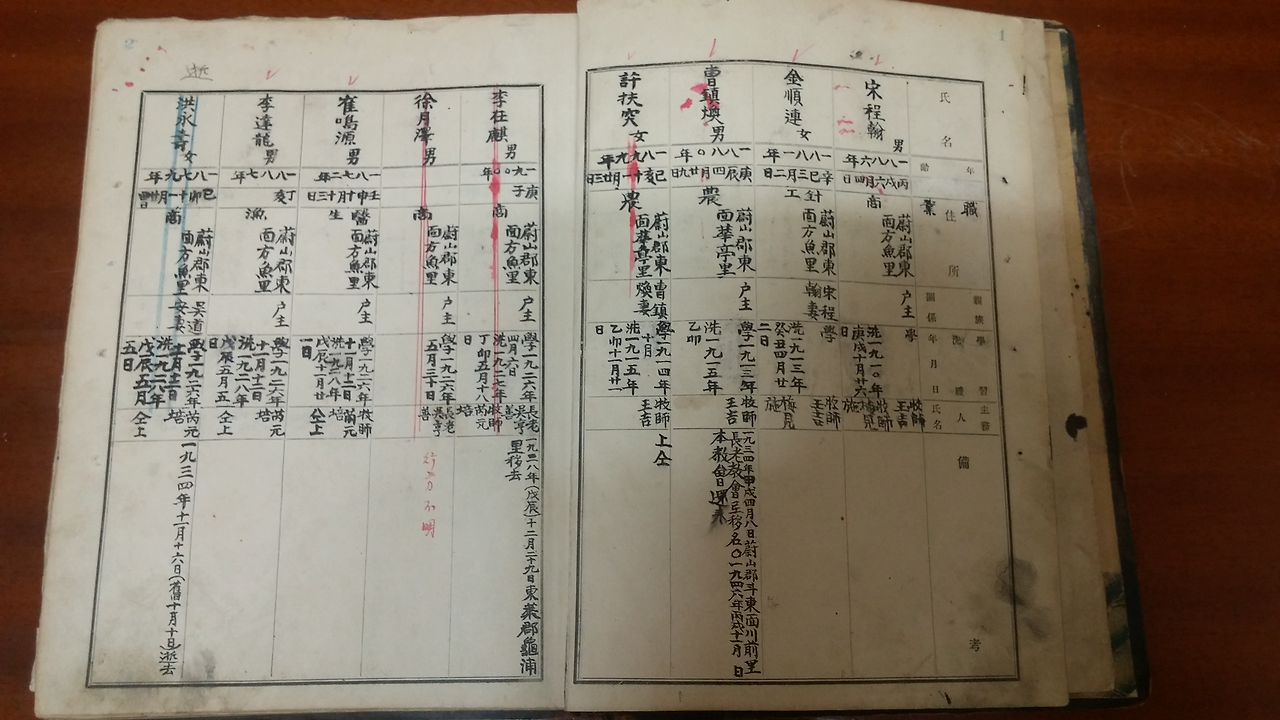 1
氏名
年齡
職業
住所
親族關係
學習洗禮年月日
主務人氏名
備考
宋程翰 男
一八八六年
丙戌六月四日
商
蔚山郡東
面方魚里
戶主
學
洗一九一〇年
庚戌十月廿六
日
牧師
王吉
牧師
施
金順連 女
一八八一年
辛巳三月二日
針工
蔚山郡東
面方魚里
宋程
翰妻
學
洗一九一三年
癸丑四月廿
二日
牧師
王吉
施
曹鎮煥 男
一八八〇年
庚辰四月廿九日
農
蔚山郡東
面華亭里
戶主
學一九一三年
洗一九一五年
乙卯
牧師
王吉
一九三四年甲戌四月八日蔚山郡斗東面川前里
長老敎會로移名〇一九四六年丙戌十一月 日
本敎會還來
許扶突 女
一八九九年
己亥十一月廿三日
農
蔚山郡東
面華亭里
曹鎮
煥妻
學一九一四年
十月
洗一九一五年
乙卯十一月廿一
日
牧師
王吉
上仝
2
李在麒 男
一九〇〇年
庚子
商
蔚山郡東
面方魚里
戶主
學一九二六年
四月六日
洗一九二七年
丁卯五月十八
日
長老
吳亨
善
牧師
芮元
培
一九二八年(戊辰)十二月二十九日東萊郡龜浦
里移去
徐月澤 男
商
蔚山郡東
面方魚里
戶主
學一九二六年
五月二十日
長老
吳亨
善
行方不明
崔鳴源 男
一八七二年
壬申十月十三日
醫生
蔚山郡東
面方魚里
戶主
學一九二六年
十一月十二日
洗一九二八年
戊辰十一月廿
一日
牧師
芮元
培
仝上
李達龍 男
一八八七年
丁亥
漁
蔚山郡東
面方魚里
戶主
學一九二六年
十一月十二日
洗一九二八年
戊辰五月五
日
芮元
培
仝上
逝
洪永壽 女
一八七九年
己卯十一月廿
商
蔚山郡東
面方魚里
吳道
安妻
學一九二六年
十一月十二日
洗一九二八年
戊辰五月
五日
芮元
培
仝上
一九三四年十一月十六日(舊十月十日)逝去